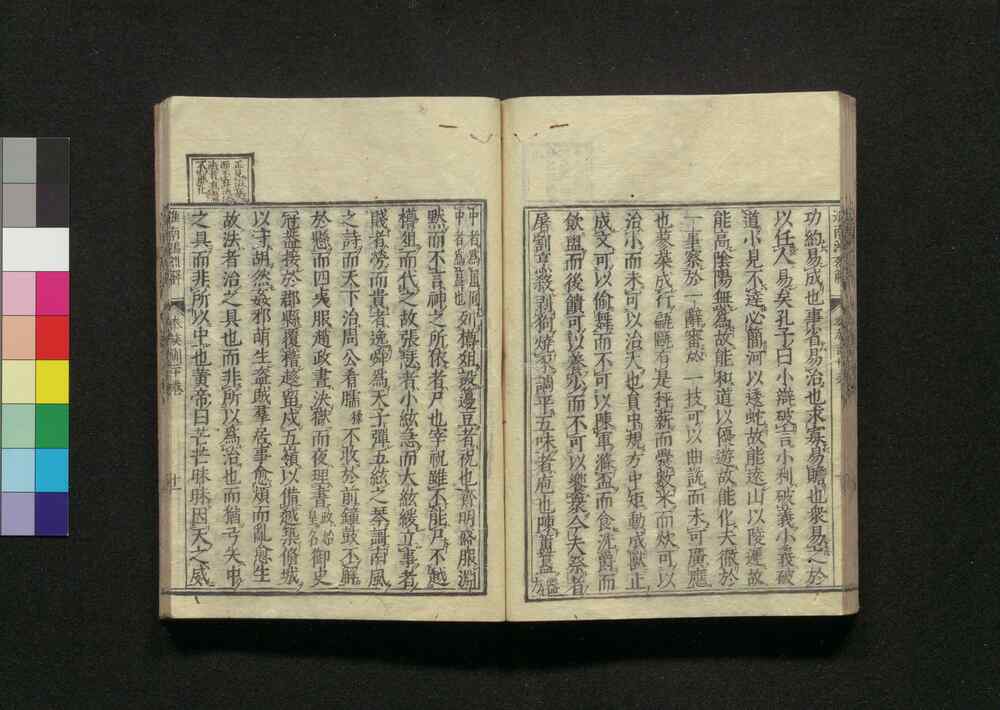 功約易成也事省易治也求寡易贍也衆易之於
以任人易矣孔子曰小辯破言小利破義小義破
道小見不達必簡河以逶蛇故能遠山以陵遲故
能高陰陽無爲故能和道以優遊故能化夫徹於
一事察於一辭審於一技可以曲說而未可廣應
也蓼菜成行甂甌有是秤薪而爨數米而炊可以
治小而未可以治大也員中規方中矩動成獸止
成文可以愉舞而不可以陳軍滌盃而食洗爵而
飲盥而後饋可以養少而不可以饗衆今夫祭者
屠割烹殺剥狗燒豕調平五味者庖也陳簠簋器方
中者爲簠圓中者爲簋也列樽俎設籩豆者祝也齊明盛服淵
黙而不言神之所依者尸也宰祝雖不能尸不越
樽俎而代之故張瑟者小絃急而大絃緩立事者
賤者勞而貴者逸舜爲天子彈五絃之琴謌南風
之詩而天下治周公肴臑不收於前鐘鼓不解
於懸而四夷服趙政晝決獄而夜理書政始皇名御史
冠蓋接於郡縣覆稽趨留戍五嶺以備越築脩城
以守胡然姦邪萌生盗賊羣居事愈煩而亂愈生
故法者治之具也而非所以爲治也而猶弓矢中
之具而非所以中也黄帝曰芒芒昧昧因天之威